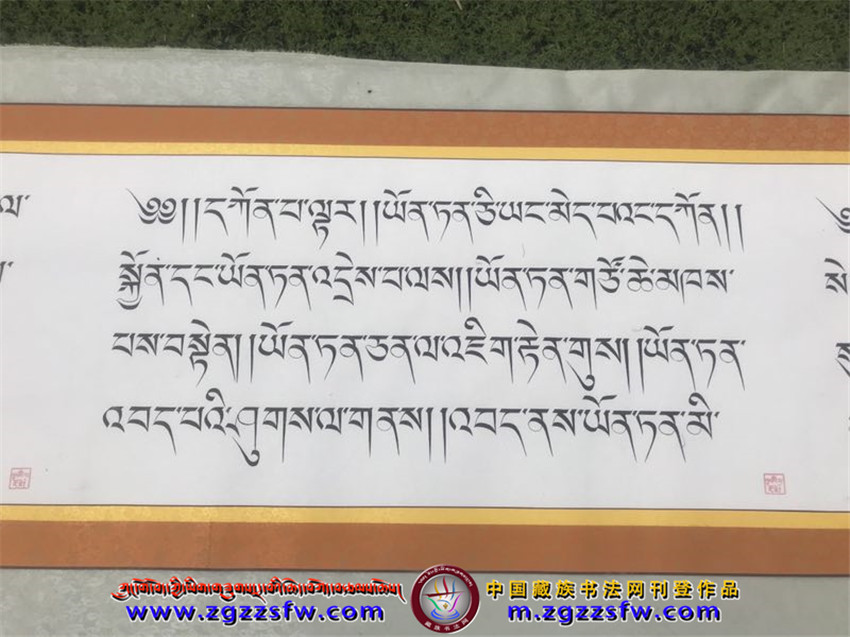 ༄༅།།དཀོན་པ་ལྟར།།ཡོན་ཏན་ཅི་ཡང་མེད་པའང་དཀོན།།
སྐྱོན་དང་ཡོན་ཏན་འདྲེས་པ་ལས།།ཡོན་ཏན་གཙོ་ཆེ་མཁས་
པས་བསྟེན།།ཡོན་ཏན་ཅན་ལ་འཇིག་རྟེན་གུས།།ཡོན་ཏན་
འབད་པའི་ཤུགས་ལ་གནས།།འབད་ནས་ཡོན་ཏན་མི་
中国藏族书法网刊登作品
www.zgzzsfw.com
m.zgzzsfw.com
藏族书法网